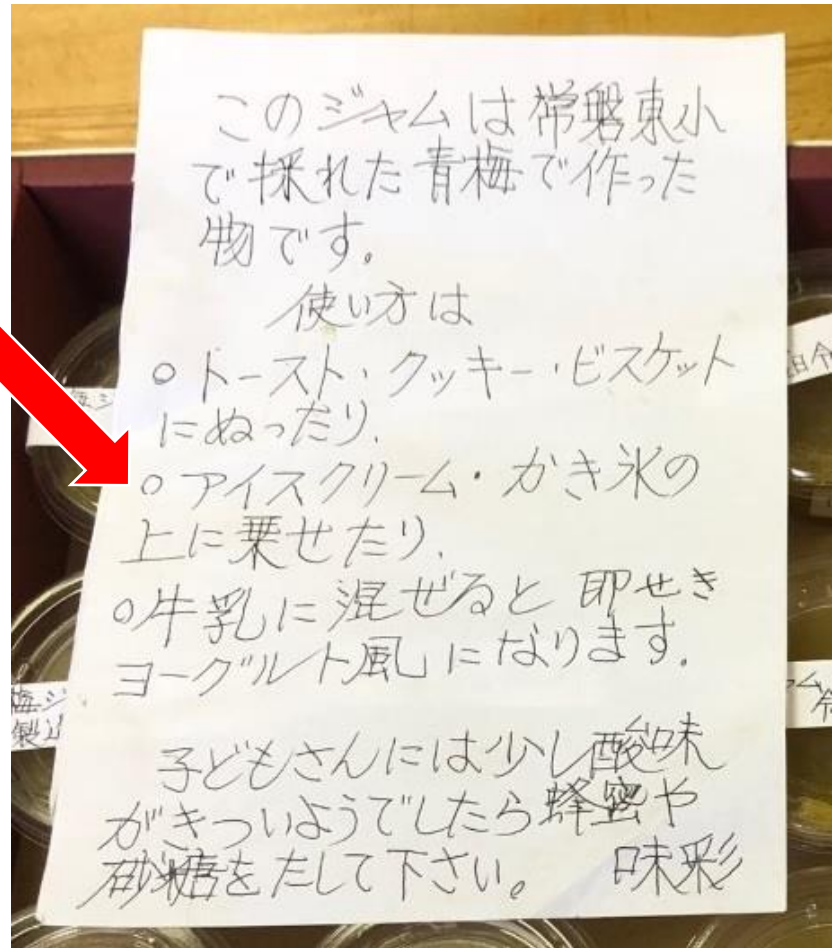 このジャムは常磐東小
で採れた青梅で作った
物です。
使い方は
○トースト・クッキー・ビスケット
にぬったり、
○アイスクリーム・かき氷の
上に乗せたり、
○牛乳に混ぜると即せき
ヨーグルト風になります。
子どもさんには少し酸味
がきついようでしたら蜂蜜や
砂糖をたして下さい。 味彩
梅ジ
製造